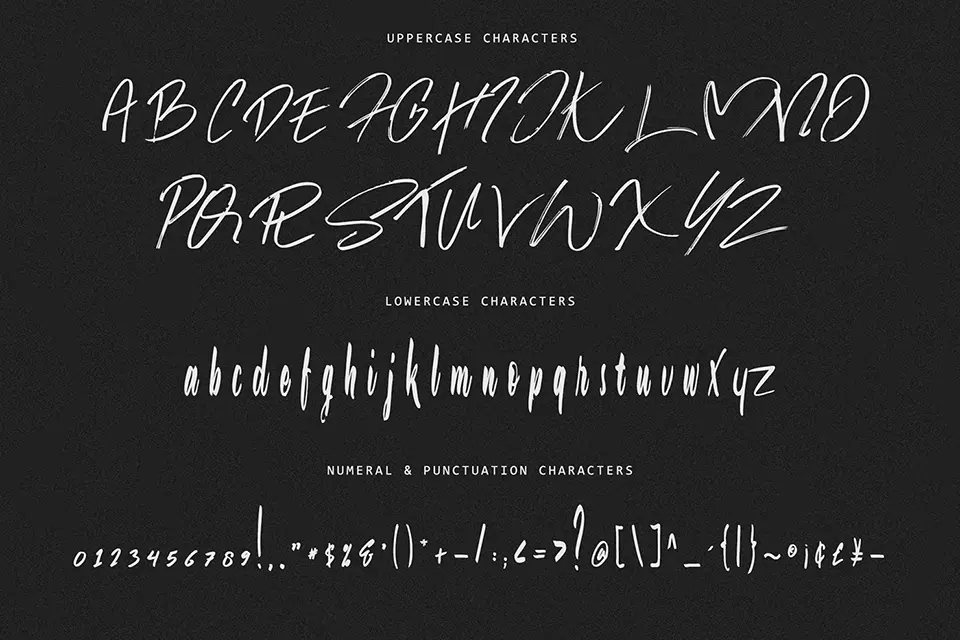 UPPERCASE CHARACTERS
ABCDEFGHIJKLMNO
PQRSTUVWXYZ
LOWERCASE CHARACTERS
abcdefghijklmnopqrstuvwxyz
NUMERAL & PUNCTUATION CHARACTERS
0123456789!,."*$%&'()*+-/:;<=>?@[\]^_´{|}~®¡¢£¥–